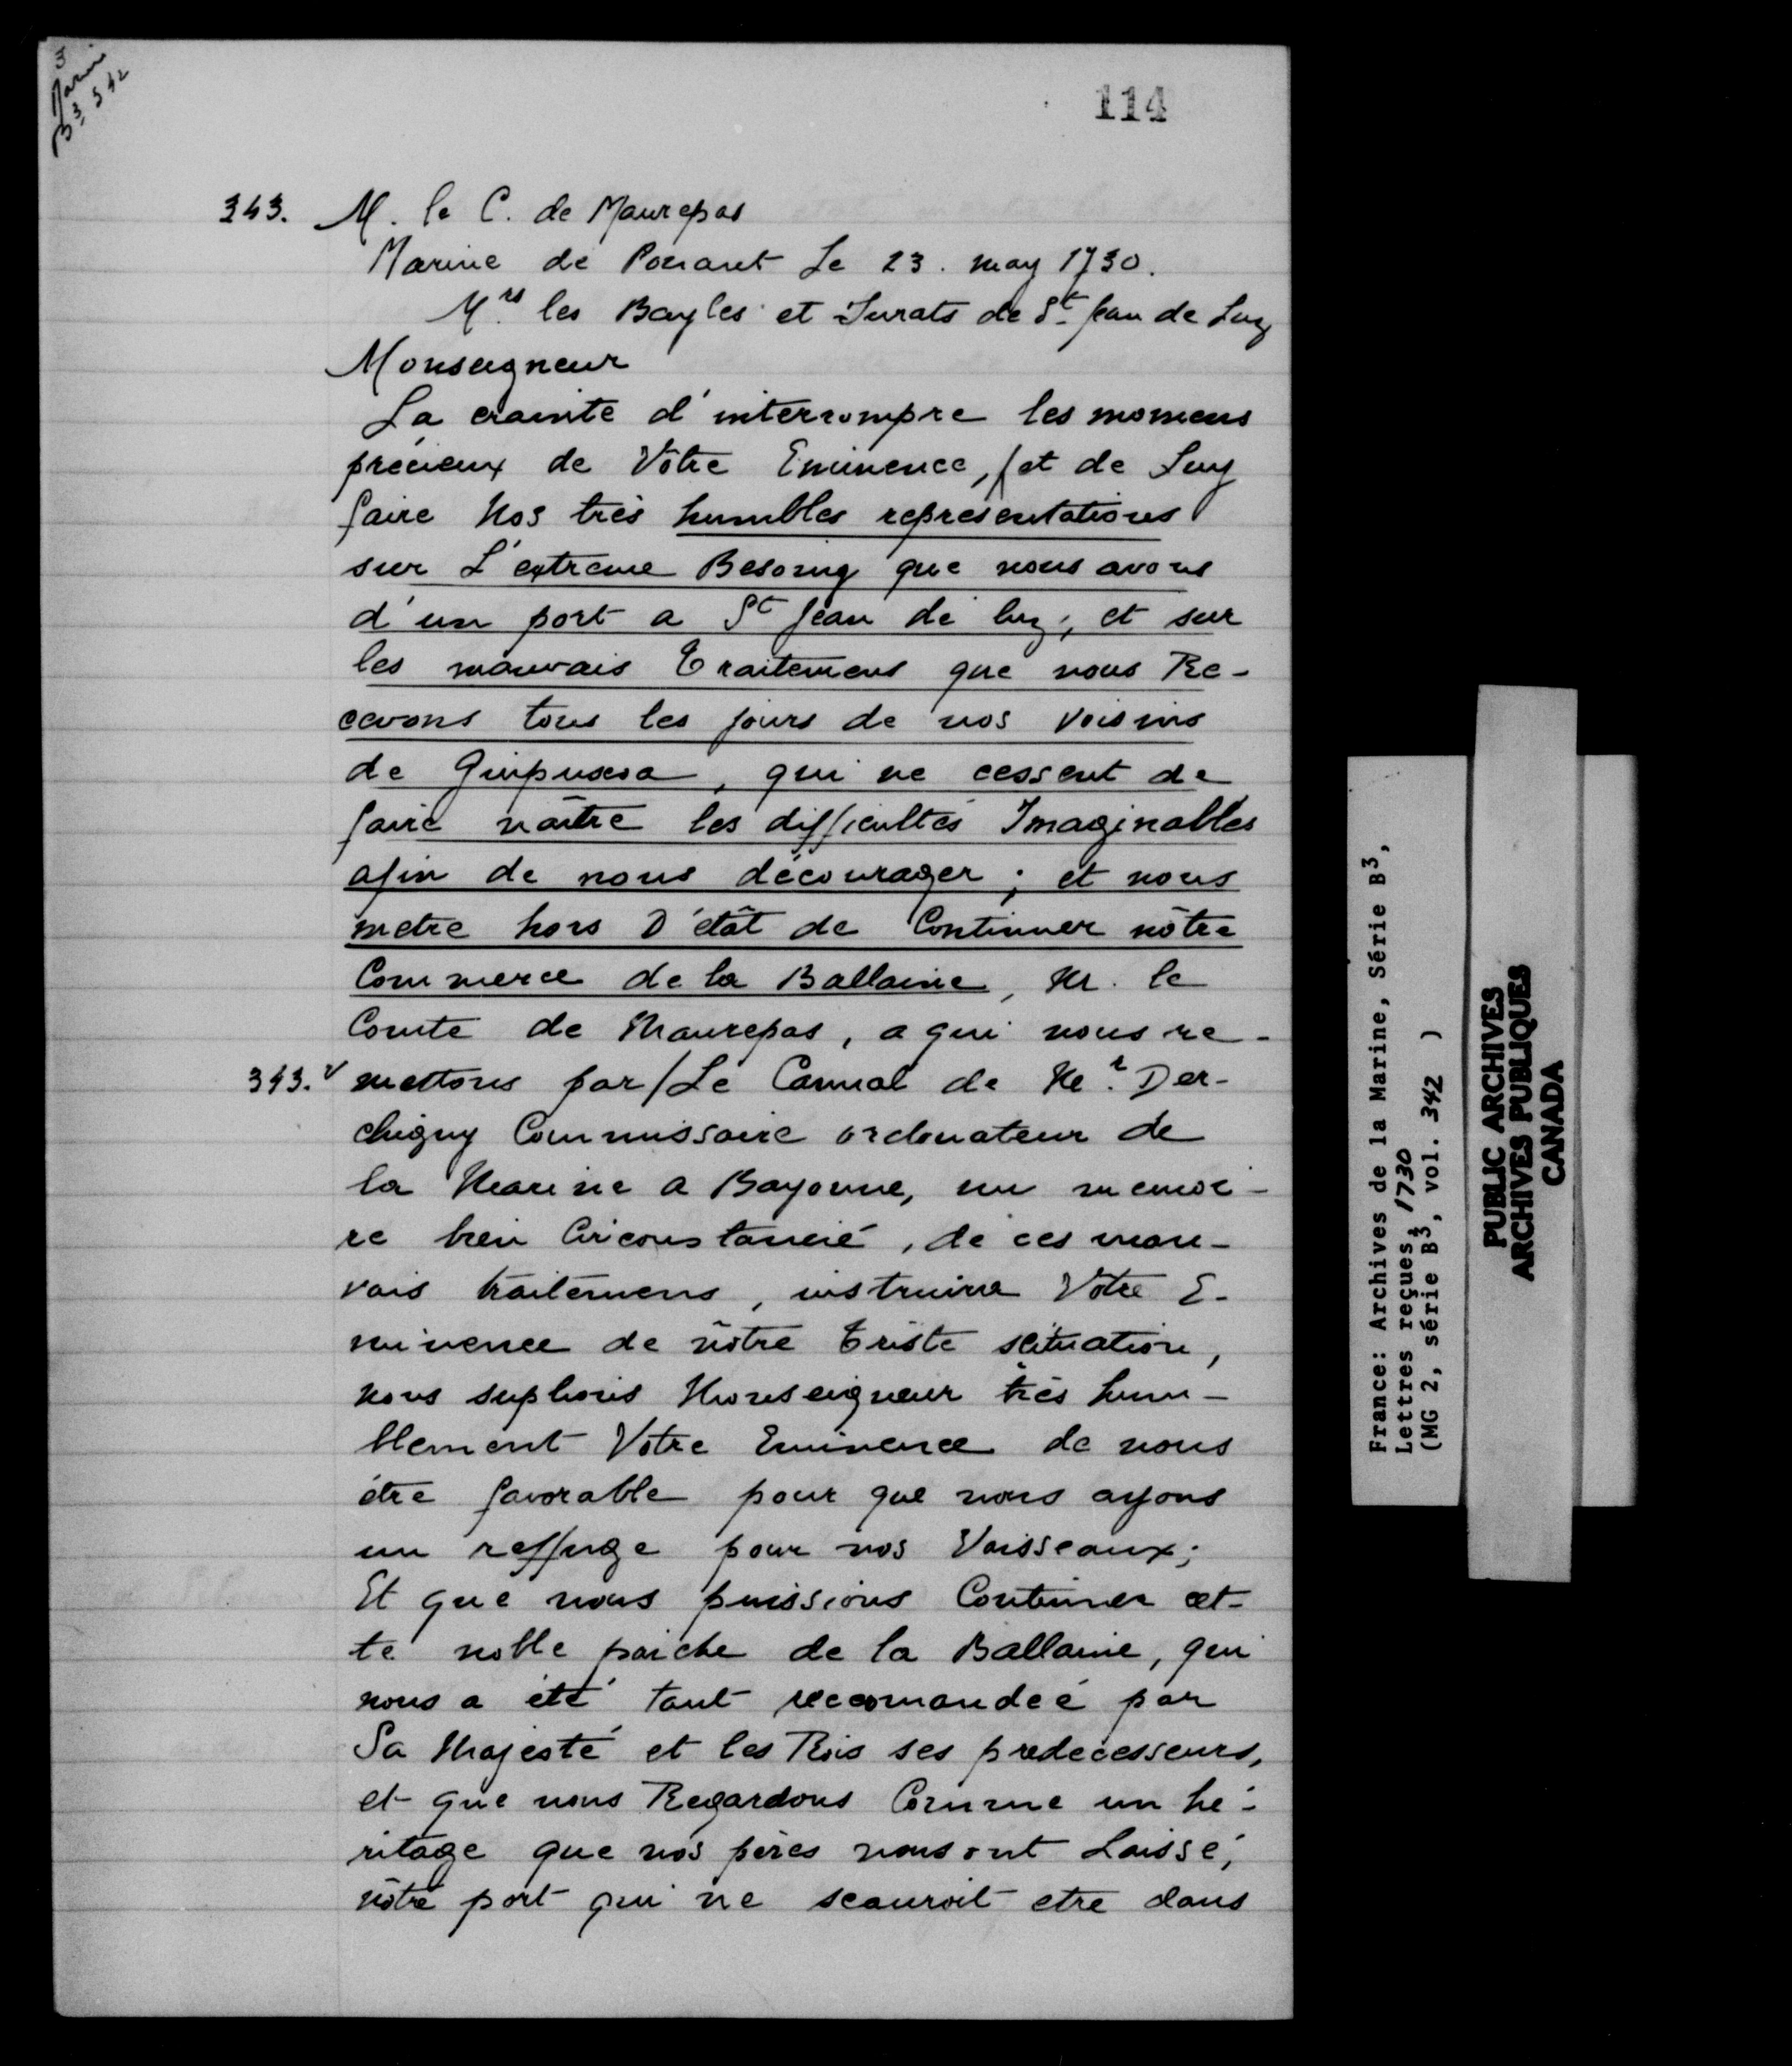 3
Marine
B3, 342
114
343. M. le C. de Maurepas
Marine de Ponant Le 23. may 1730.
Mrs les Bayles et Jurats de St Jean de Luz
Monseigneur
La crainte d'interrompre les momens
précieux de Vôtre Eminence, (et de Luy
faire Nos très humbles représentations
sur L'extreme Besoing que nous avons
d'un port a St Jean de luz; et sur
les mauvais traitemens que nous Re-
cevons tous les jours de nos voisins
de Guipuscoa, qui ne cessent de
faire naitre les difficultés Imaginables
afin de nous décourager; et nous
metre hors D'étât de Continuer nôtre
Commerce de la Ballaine, Mr. le
Comte de Maurepas, a qui nous re-
343.v mettons par/Le Cannal de Mr. Der-
chigny Commissaire ordonateur de
la Marine a Bayonne, un memoi-
re bien Circonstancié, de ces mau-
vais traitemens, instruira Votre E-
minence de nôtre triste scituation,
Nous suplions Monseigneur très hum-
blement Votre Eminence de nous
étre favorable pour que nous ayons
un reffuge pour nos Vaisseaux;
Et que nous puissions Continuer cet-
te noble paiche de la Ballaine, qui
nous a été tant recomandeé par
Sa Majesté et les Rois ses predecesseurs,
et que nous Regardons Comme un hé-
ritage que nos pères nous ont Laissé;
nôtre port qui ne scauroit etre dans
France: Archives de la Marine, Série B3,
Lettres reçues, 1730
(MG 2, série B3, vol. 342 )
PUBLIC ARCHIVES
ARCHIVES PUBLIQUES
CANADA